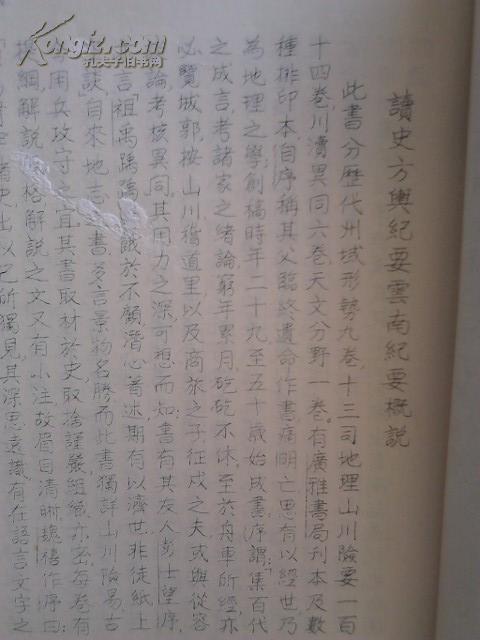 讀史方輿紀要雲南紀要概說
此書分歷代州域形勢九卷,十三司地理山川險要一百
十四卷,川瀆異同六卷天文分野一卷。有廣雅書局刋本及數
種排印本,自序稱其父臨終遺命作書,痛明亡思有以經世乃
為地理之學,創稿時年二十九至五十歲始成書,序謂:集百代
之成言,考諸家之緒論,窮年累月,矻矻不休,至於舟車所經,亦
必覽城郭,按山川,稽道里,以及商旅之子,征戍之夫,或與從容
論,考核異同,其用力之深,可想而知,書有其友人彭士望序
言,祖禹踽踽 餓於不顧,潛心著述,期有以濟世,非徒紙上
談,自來地志 書,多言景物名勝,而此書獨詳山川險易,古
用兵攻守之宜,其書取材於史,取捨謹嚴,組織亦密,每卷有
綱,解說 格,解說之文又有小注,故眉目清晰,魏禧作序曰:
出以己所獨見,其深思遠識,有在語言文字之
孔夫子旧书网